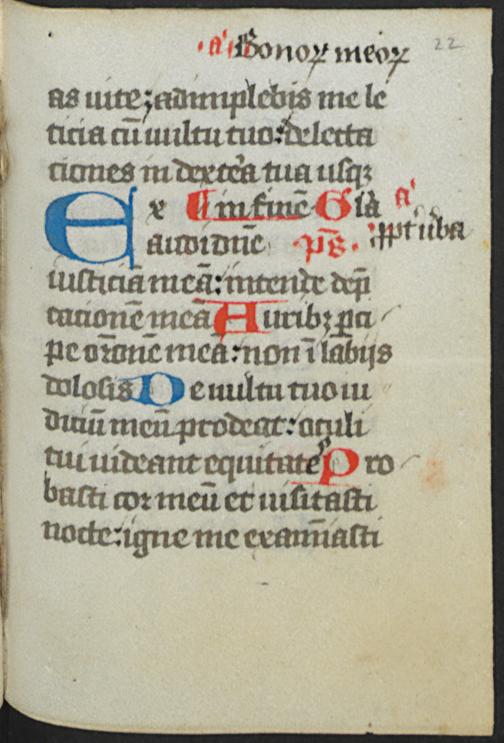 a
Bonoꝝ meoꝝ
22
as uite: adimplebis me le
ticia cū uultu tuo: delecta
tiones in dextera tua usqꝫ
Ex In finē Glā
a
audi dn̄e ps
iusticiā meā: intende dep̄
cationē meā Auribꝫ ꝑci
pe or̄onē meā: non ī labijs
dolosis De uultu tuo iu
diciū meū prodeat: oculi
tui uideant equitatē Pro
basti cor meū et uisitasti
nocte: igne me examīasti